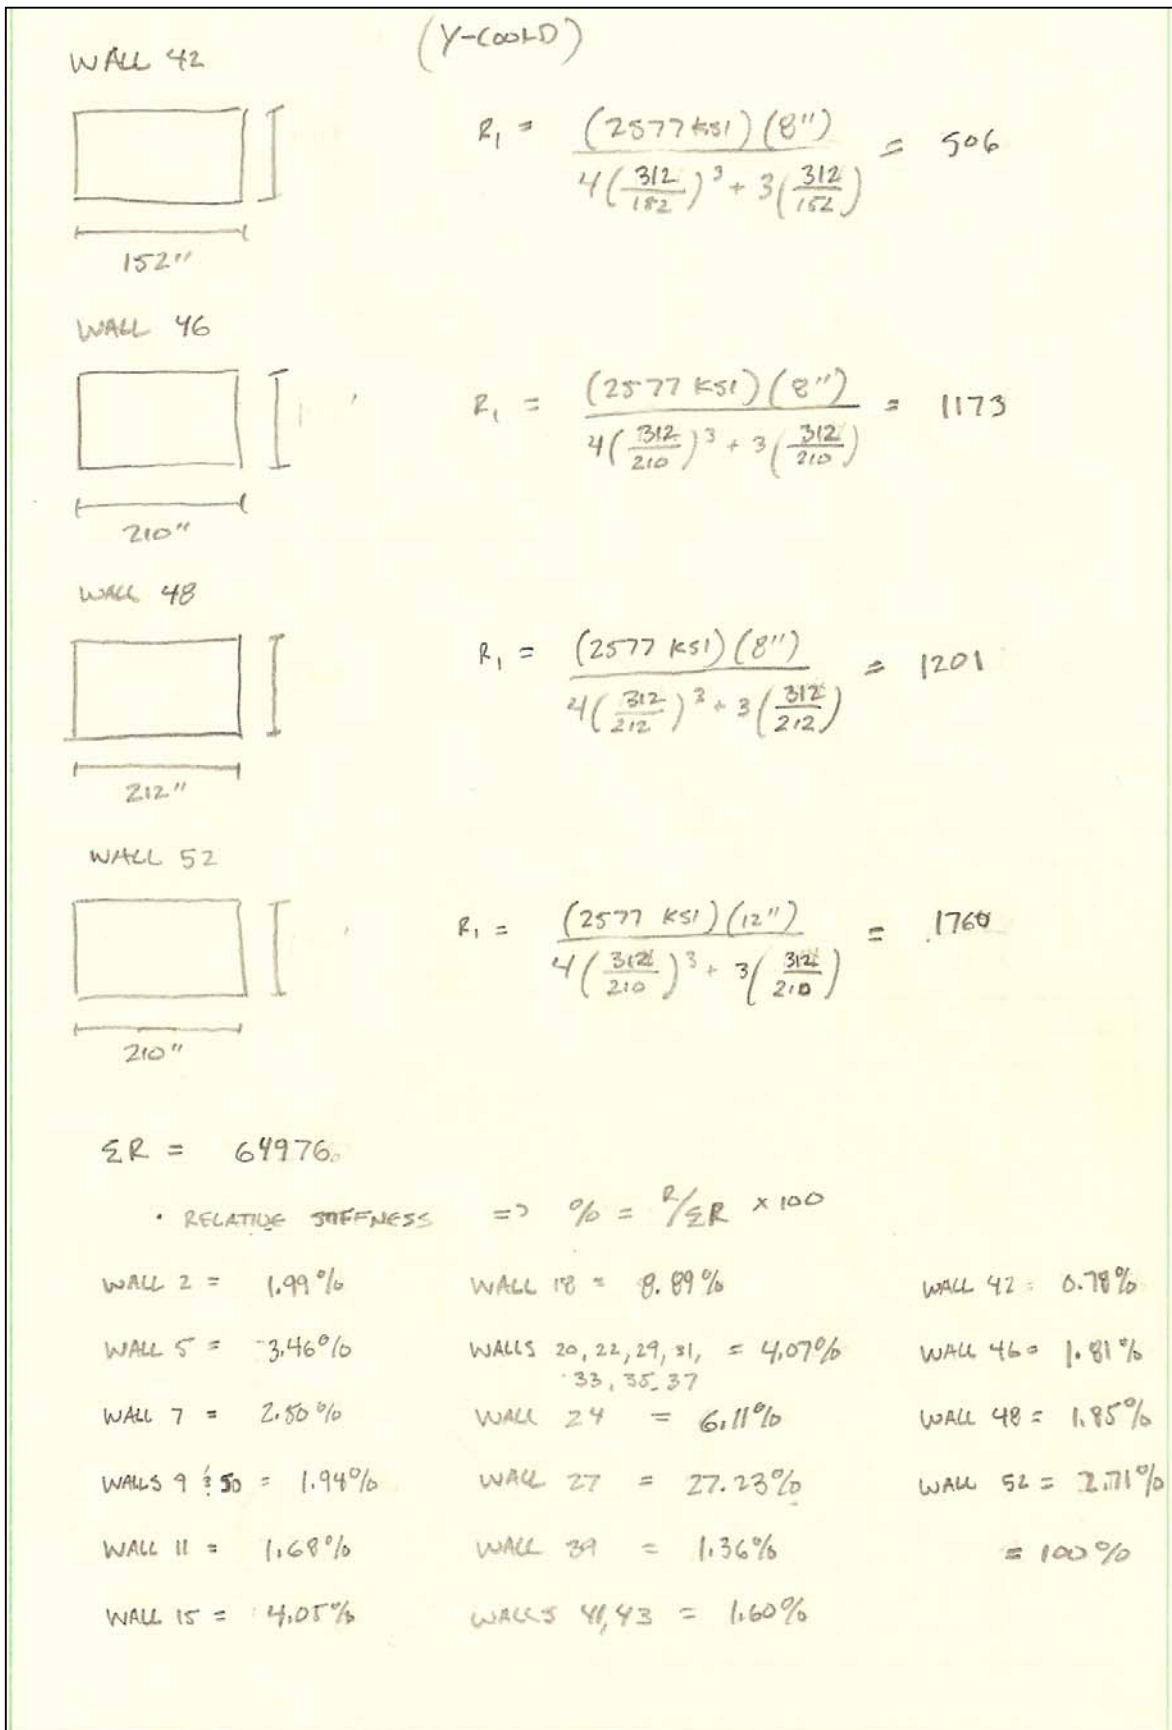 (Y-COORD)
WALL 42
R₁ = (2577 KSI)(8") / 4(312/182)³ + 3(312/152) = 506
152"
WALL 46
R₁ = (2577 KSI)(8") / 4(312/210)³ + 3(312/210) = 1173
210"
WALL 48
R₁ = (2577 KSI)(8") / 4(312/212)³ + 3(312/212) = 1201
212"
WALL 52
R₁ = (2577 KSI)(12") / 4(312/210)³ + 3(312/210) = 1760
210"
ΣR = 64976
• RELATIVE STIFFNESS => % = R/ΣR × 100
WALL 2 = 1.99%
WALL 5 = 3.46%
WALL 7 = 2.50%
WALLS 9 & 50 = 1.94%
WALL 11 = 1.68%
WALL 15 = 4.05%
WALL 18 = 8.89%
WALLS 20, 22, 29, 31, = 4.07%
33, 35, 37
WALL 24 = 6.11%
WALL 27 = 27.23%
WALL 39 = 1.36%
WALLS 41,43 = 1.60%
WALL 42 = 0.78%
WALL 46 = 1.81%
WALL 48 = 1.85%
WALL 52 = 2.71%
= 100%